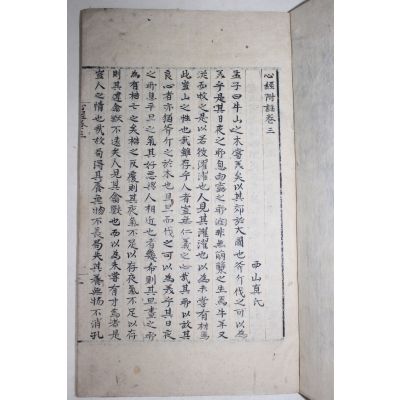 心經附註卷三
西山眞氏
孟子曰牛山之木嘗美矣以其郊於大國也斧斤伐之可以爲
美乎是其日夜之所息雨露之所潤非無萌蘖之生焉牛羊又
從而牧之是以若彼濯濯也人見其濯濯也以爲未嘗有材焉
此豈山之性也哉雖存乎人者豈無仁義之心哉其所以放其
良心者亦猶斧斤之於木也旦旦而伐之可以爲美乎其日夜
之所息平旦之氣其好惡與人相近也者幾希則其旦晝之所
爲有梏亡之矣梏之反覆則其夜氣不足以存夜氣不足以存
則其違禽獸不遠矣人見其禽獸也而以爲未嘗有才焉者是
豈人之情也哉故苟得其養無物不長苟失其養無物不消孔